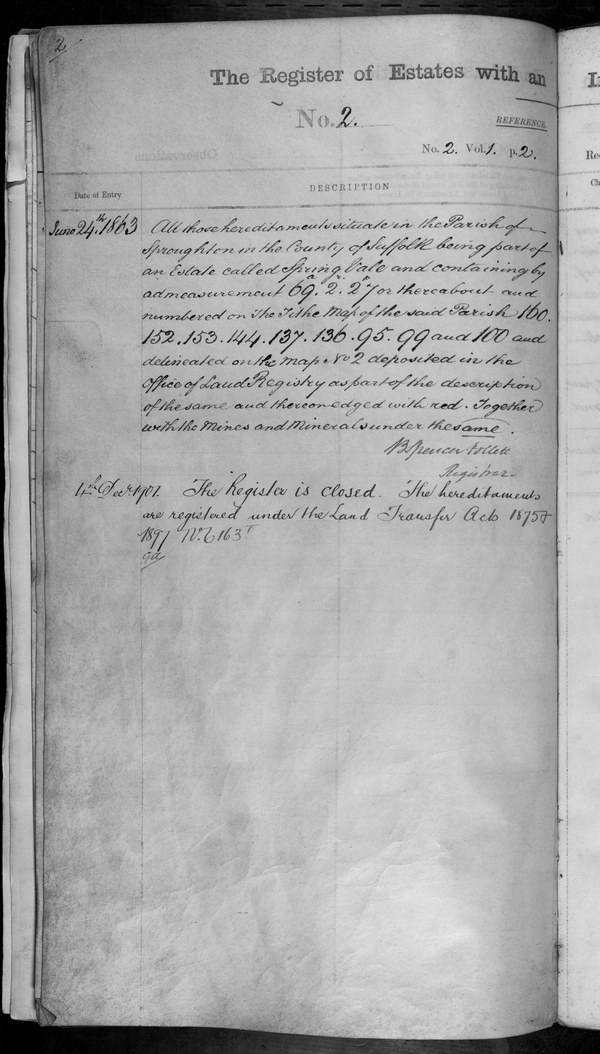 2
The Register of Estates with an
No. 2.
REFERENCE.
No. 2. Vol. 1. p. 2.
Observations
Date of Entry
DESCRIPTION
June 24th 1863 All those hereditaments situate in the Parish of
Sproughton in the County of Suffolk being part of
an Estate called Spring Vale and containing by
admeasurement 69a. 2r. 27p or thereabout and
numbered on the Tithe Map of the said Parish 160.
152. 153. 144. 137. 136. 95. 99 and 100 and
delineated on the Map No 2 deposited in the
Office of Land Registry as part of the description
of the same and thereon edged with red. Together
with the Mines and Minerals under the same.
B Spencer Follett
Registrar
4th Decr. 1901. The Register is closed. The hereditaments
are registered under the Land Transfer Acts 1875 &
1897 No.